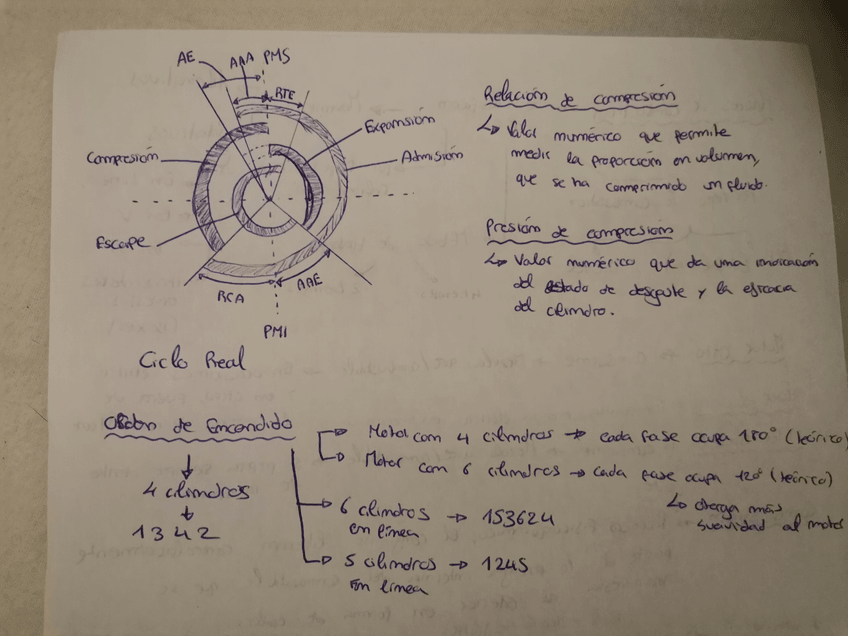 AE
AAA PMS
RTE
Expansión
Compresión
Admisión
Escape
RCA
AAE
PMI
Ciclo Real
Relación de compresión
↳ Valor numérico que permite
medir la proporción en volumen,
que se ha comprimido un fluido.
Presión de compresión
↳ Valor numérico que da una indicación
del estado de desgaste y la eficacia
del cilindro.
Orden de Encendido
4 cilindros
1 3 4 2
Motor con 4 cilindros → cada fase ocupa 180° (teórico)
Motor con 6 cilindros → cada fase ocupa 120° (teórico)
↳ otorga más
suavidad al motor
6 cilindros → 153624
en línea
5 cilindros → 1245
En línea